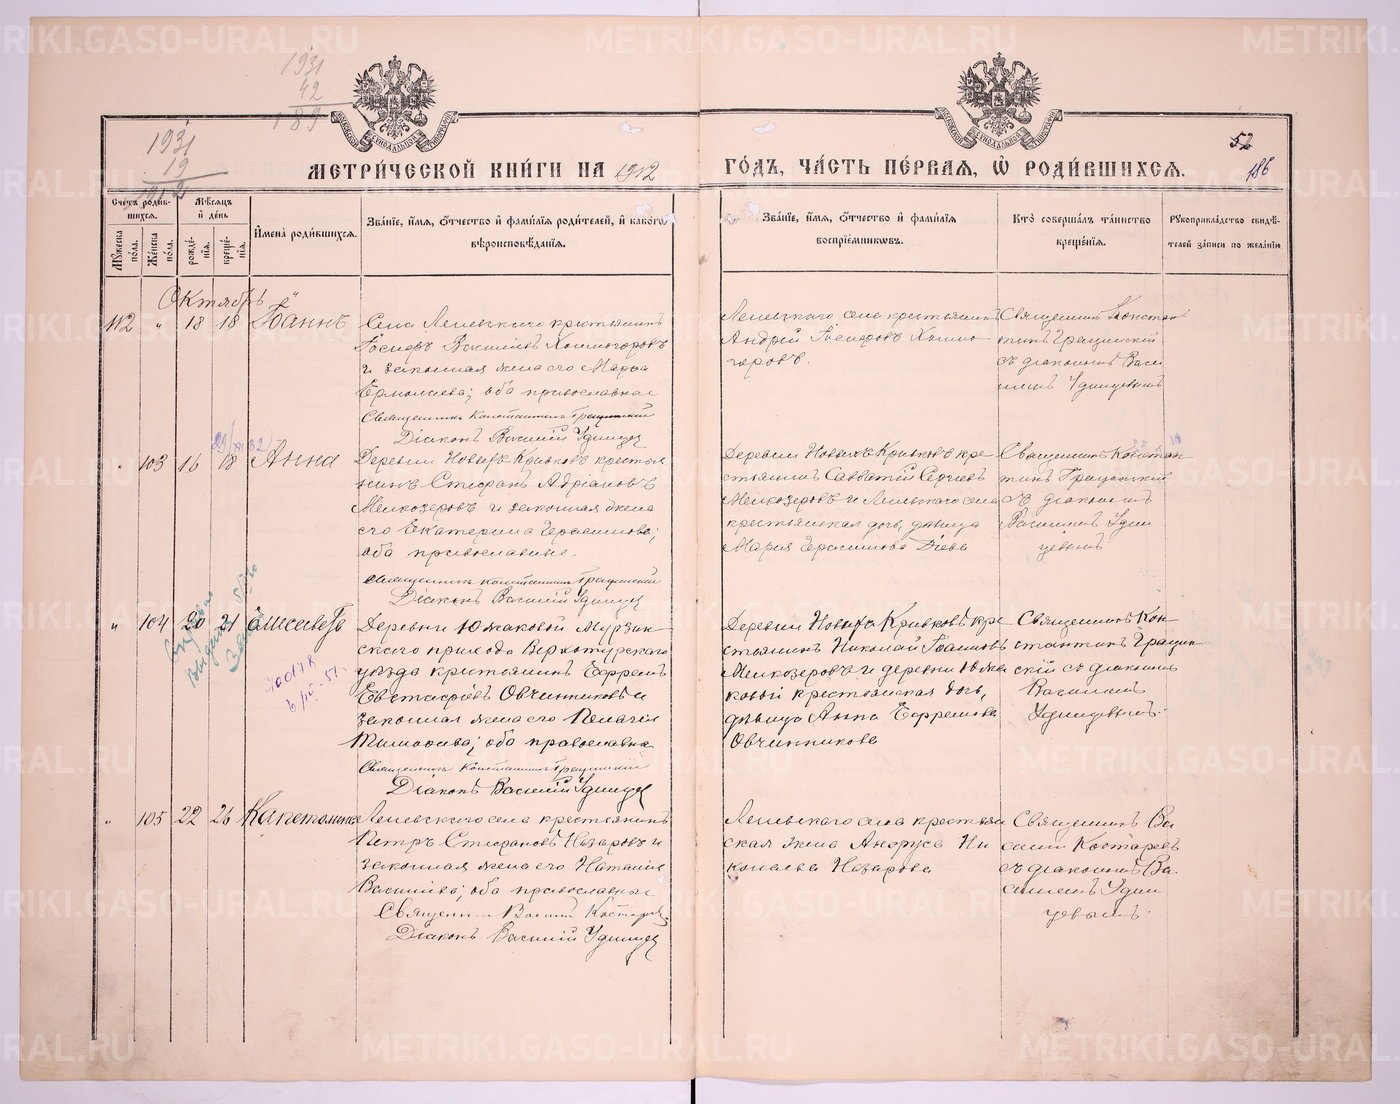 1931
42
1931
19
1912
МЕТРИ́ЧЕСКОЙ КНИ́ГИ НА 1912
ГО́ДЪ, ЧА́СТЬ ПЕ́РВАЯ, Ѡ РОДИ́ВШИХСЯ.
52
186
Сче́тъ роди́вшихся.
Мꙋ́жеска по́ла.
Же́нска по́ла.
Мѣ́сяцъ и҆ де́нь
рожде́нїя.
креще́нїя.
И҆мена̀ роди́вшихся.
Зва́нїе, и҆́мя, ѻ҆́тчество и҆ фами́лїя роди́телей, и҆ како́гѡ
вѣроисповѣ́данїя.
Зва́нїе, и҆́мя, ѻ҆́тчество и҆ фами́лїя
воспрїе́мникѡвъ.
Кто̀ соверша́лъ та́инство
креще́нїя.
Рꙋкоприкла́дство свидѣ́-
телей за́писи по жела́нїю
Октябрь
112 " 18 18 Іоаннъ
Села Леневскаго крестьянинъ
Іосифъ Василіевъ Колмогоровъ
и законная жена его Марѳа
Ермолаева; оба православные
Священникъ Константинъ Грацинскій
Діаконъ Василій Удинцев
Леневскаго села крестьянинъ
Андрей Іосифовъ Колмо
горовъ.
Священникъ Констан
тинъ Грацинскій
съ діакономъ Васи
ліемъ Удинцевымъ
" 103 16 18 Анна
Деревни Новыхъ Кривковъ крестья
нинъ Стефанъ Адріановъ
Мелкозеровъ и законная жена
его Екатерина Герасимова;
оба православные.
Священникъ Константинъ Грацинскій
Діаконъ Василій Удинцев
Деревни Новыхъ Кривковъ кре
стьянинъ Савватій Сергіевъ
Мелкозеровъ и Леневскаго села
крестьянская дочь, дѣвица
Марія Герасимова Діева
Священникъ Констан
тинъ Грацинскій
съ діакономъ
Василіемъ Удин
цевымъ
" 104 20 21 Елисавета
Деревни Южаковой Мурзин
скаго прихода Верхотурскаго
уѣзда крестьянинъ Ефремъ
Евстафіевъ Овчинниковъ и
законная жена его Пелагія
Тимоѳеева; оба православные
Священникъ Константинъ Грацинскій
Діаконъ Василій Удинцев
Деревни Новыхъ Кривковъ кре
стьянинъ Николай Іоанновъ
Мелкозеровъ и деревни Южа
ковой крестьянская дочь,
дѣвица Анна Ефремова
Овчинникова
Священникъ Кон
стантинъ Грацин
скій съ діакономъ
Василіемъ
Удинцевымъ.
" 105 22 26 Капитолина
Леневскаго села крестьянинъ
Петръ Стефановъ Назаровъ и
законная жена его Наталія
Василіева; оба православные
Священникъ Василій Костарев
Діаконъ Василій Удинцев
Леневскаго села крестьян
ская жена Анфуса Ни
колаева Назарова
Священникъ Ва
силій Костаревъ
съ діакономъ Ва
силіемъ Удин
цевымъ.
METRIKI.GASO-URAL.RU